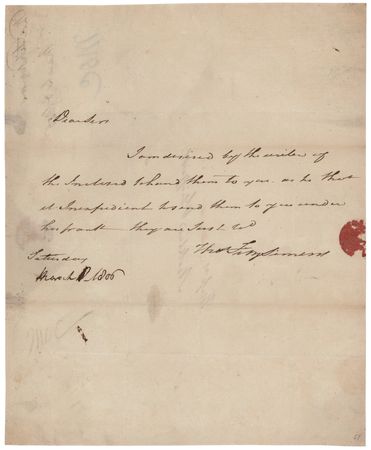 Dear Sir
I am desired by the writer of
the Inclosed to hand them to you. as he tho't
it Inexpedient to send them to you under
his frank — they are Just
Thos FitzSimons
Saturday
March 1806